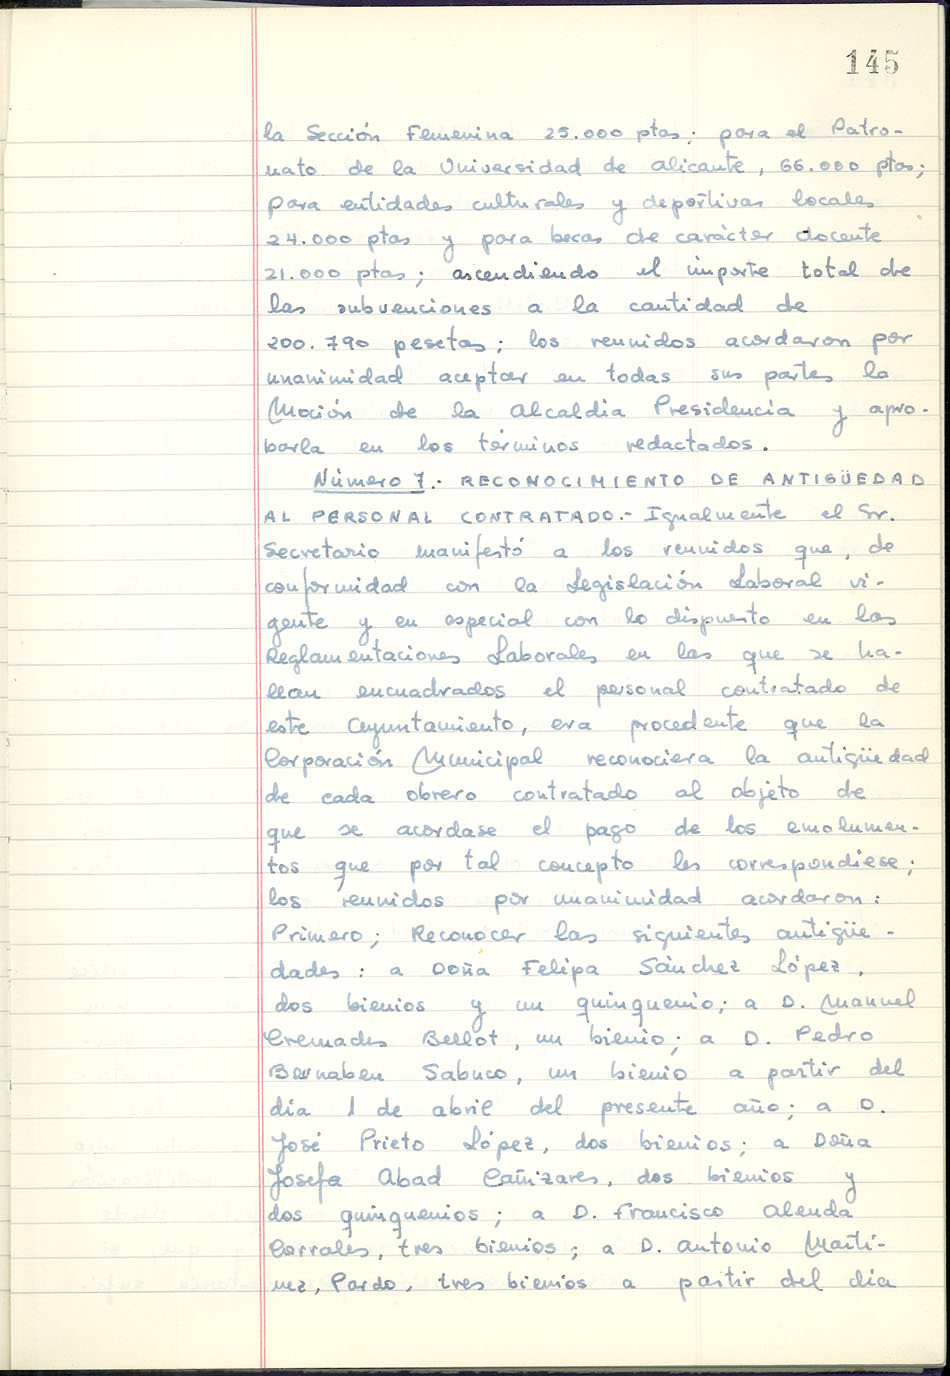 145
la Sección Femenina 25.000 ptas; para el Patro-
nato de la Universidad de Alicante, 66.000 ptas;
para entidades culturales y deportivas locales
24.000 ptas y para becas de carácter docente
21.000 ptas; ascendiendo el importe total de
las subvenciones a la cantidad de
200.790 pesetas; los reunidos acordaron por
unanimidad aceptar en todas sus partes la
Moción de la Alcaldia Presidencia y apro-
barla en los términos redactados.
Número 7.- RECONOCIMIENTO DE ANTIGÜEDAD
AL PERSONAL CONTRATADO.- Igualmente el Sr.
Secretario manifestó a los reunidos que, de
conformidad con la Legislación Laboral vi-
gente y en especial con lo dispuesto en las
Reglamentaciones Laborales en las que se ha-
llan encuadrados el personal contratado de
este Ayuntamiento, era procedente que la
Corporación Municipal reconociera la antigüedad
de cada obrero contratado al objeto de
que se acordase el pago de los emolumen-
tos que por tal concepto les correspondiese;
los reunidos por unanimidad acordaron:
Primero; Reconocer las siguientes antigüe-
dades: a Doña Felipa Sánchez López,
dos bienios y un quinquenio; a D. Manuel
Cremades Bellot, un bienio; a D. Pedro
Bernabeu Sabuco, un bienio a partir del
dia 1 de abril del presente año; a D.
José Prieto López, dos bienios; a Doña
Josefa Abad Cañizares, dos bienios y
dos quinquenios; a D. Francisco Alenda
Corrales, tres bienios; a D. Antonio Martí-
nez, Pardo, tres bienios a partir del dia